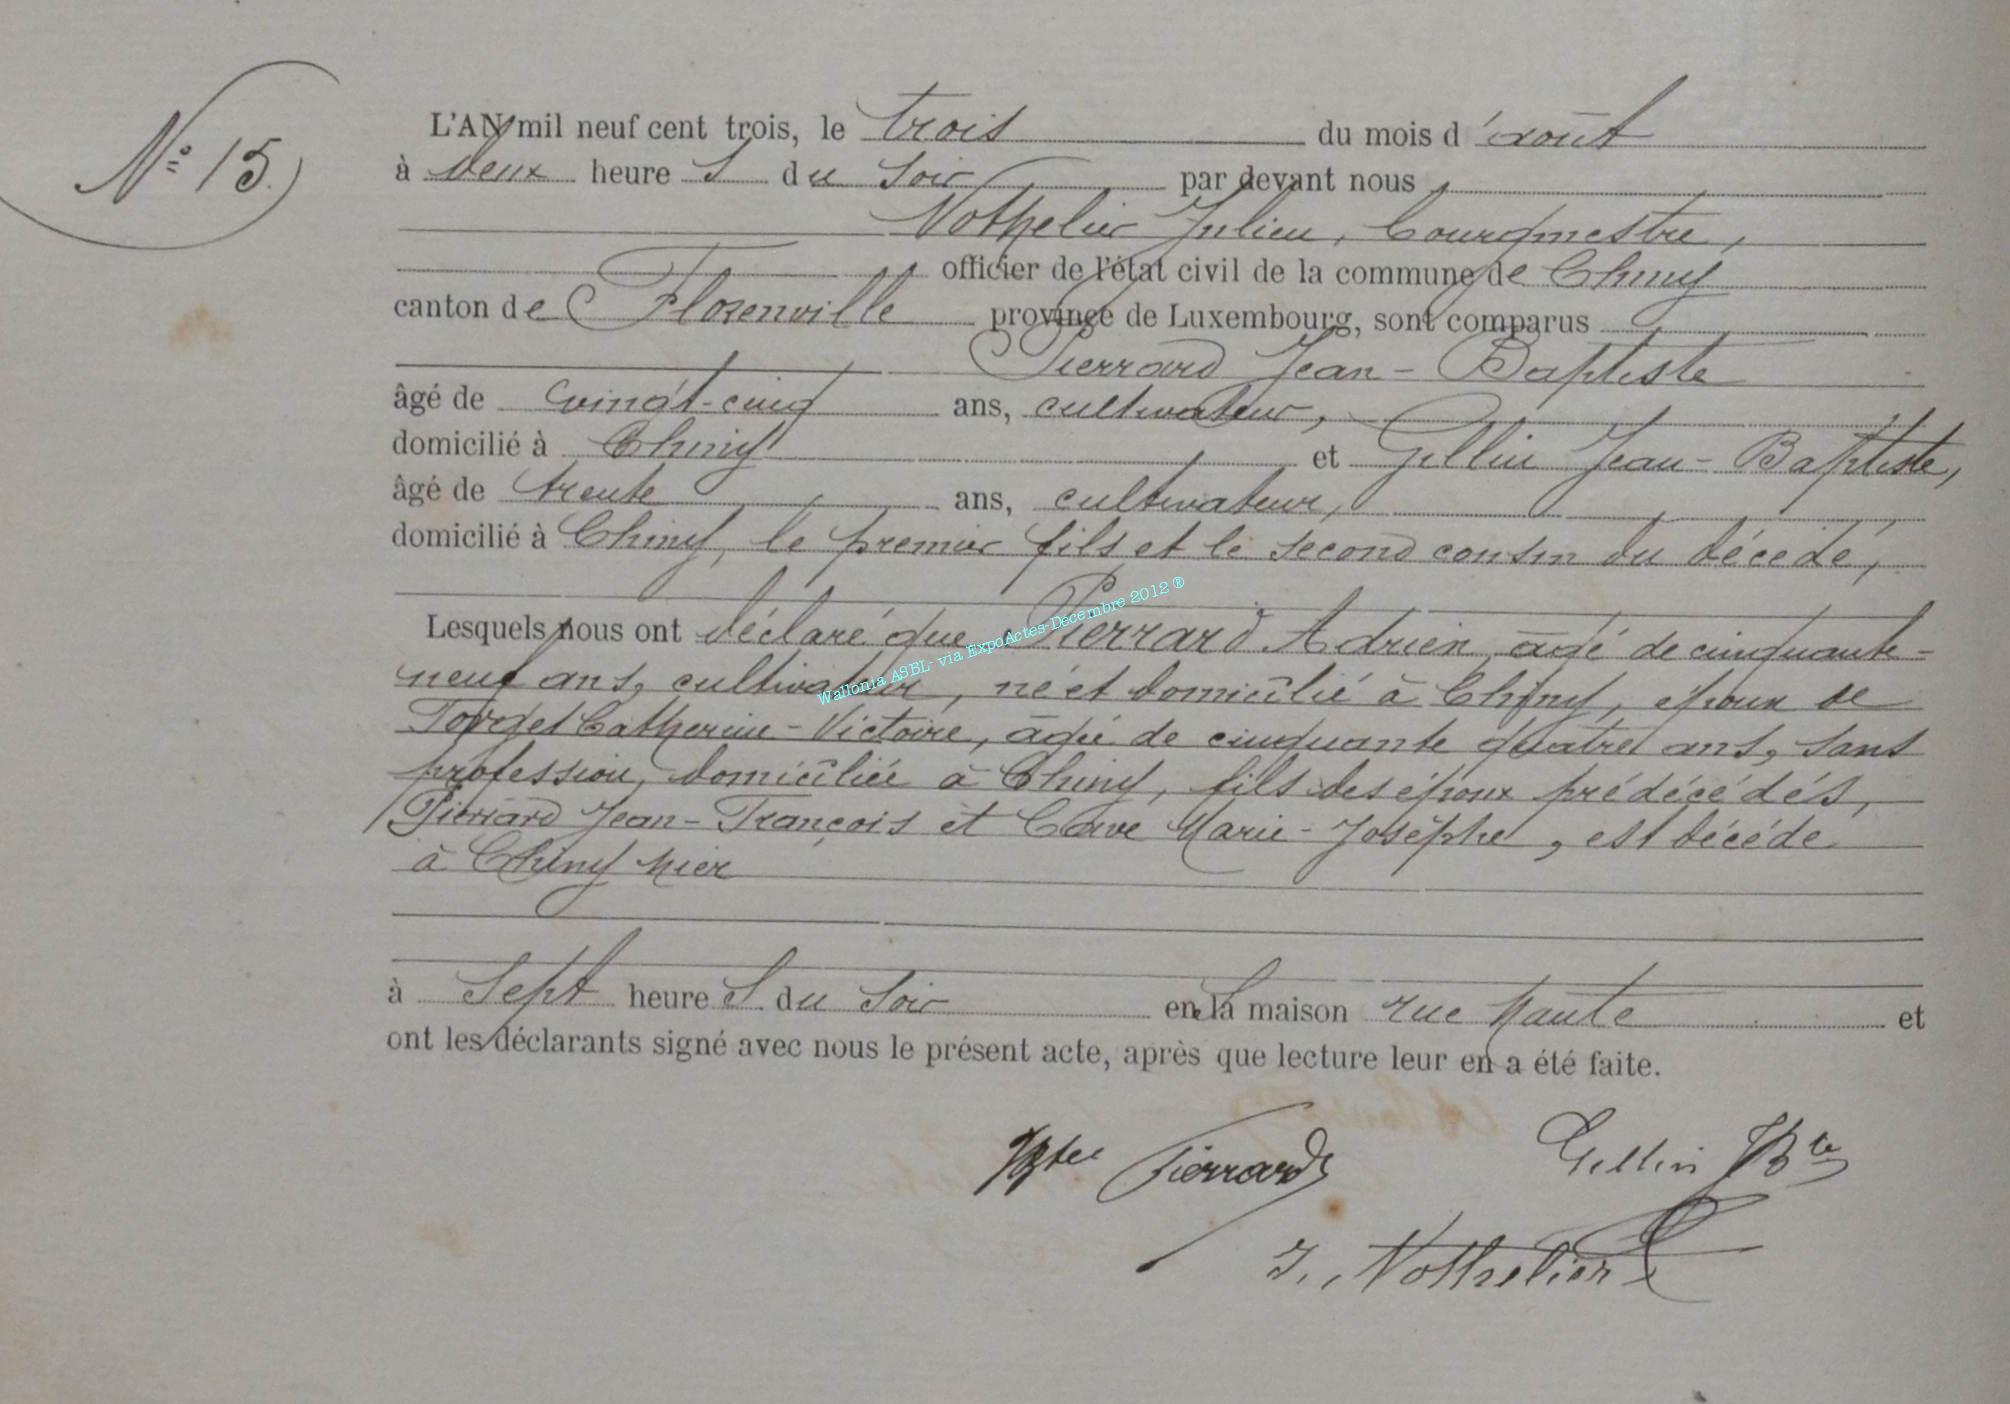 N° 15.
L'AN mil neuf cent trois, le trois du mois d'août
à deux heures du soir par devant nous
Nothelier Julien, bourgmestre,
officier de l'état civil de la commune de Chiny
canton de Florenville province de Luxembourg, sont comparus
Pierrard Jean-Baptiste
âgé de vingt-cinq ans, cultivateur,
domicilié à Chiny et Gillin Jean-Baptiste,
âgé de trente ans, cultivateur,
domicilié à Chiny, le premier fils et le second cousin du décédé,
Lesquels nous ont déclaré que Pierrard Adrien, âgé de cinquante-
neuf ans, cultivateur, né et domicilié à Chiny, époux de
Torget Catherine-Victoire, âgée de cinquante quatre ans, sans
profession, domiciliée à Chiny, fils des époux prédécédés,
Pierrard Jean-François et Cave Marie-Josèphe, est décédé
à Chiny hier
à sept heures du soir en sa maison rue haute et
ont les déclarants signé avec nous le présent acte, après que lecture leur en a été faite.
JBte Pierrard Gillin JBte
J. Nothelier
Wallonia ASBL- via ExpoActes-Décembre 2012 ®